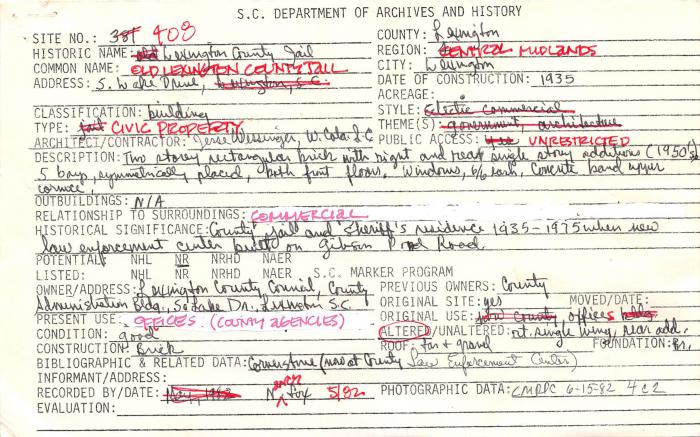 S.C. DEPARTMENT OF ARCHIVES AND HISTORY
SITE NO.: 381 408 COUNTY: Lexington
HISTORIC NAME: old Lexington County Jail REGION: CENTRAL MIDLANDS
COMMON NAME: OLD LEXINGTON COUNTY JAIL CITY: Lexington
ADDRESS: S. Lake Drive, Lexington, S.C. DATE OF CONSTRUCTION: 1935
ACREAGE:
CLASSIFICATION: building STYLE: Eclectic commercial
TYPE: CIVIC PROPERTY THEME(S): government, architecture
ARCHITECT/CONTRACTOR: Jesse Wessinger, W. Cola. S.C PUBLIC ACCESS: UNRESTRICTED
DESCRIPTION: Two story rectangular brick with right and rear single story additions (1950's)
5 bays, symmetrically placed, both front floors. Windows, 6/6 sash, concrete band upper
cornice.
OUTBUILDINGS: N/A
RELATIONSHIP TO SURROUNDINGS: COMMERCIAL
HISTORICAL SIGNIFICANCE: County jail and Sheriff's residence 1935-1975 when new
law enforcement center built on Gibson Pond Road
POTENTIAL NHL NR NRHD NAER
LISTED: NHL NR NRHD NAER S.C. MARKER PROGRAM
OWNER/ADDRESS: Lexington County Council, County PREVIOUS OWNERS: County
Administration Bldg, So Lake Dr. Lexington S.C. ORIGINAL SITE: yes MOVED/DATE:
PRESENT USE: OFFICES (COUNTY AGENCIES) ORIGINAL USE: County, offices
CONDITION: good ALTERED/UNALTERED: rt. single wing, rear add.
CONSTRUCTION: Brick ROOF: tar & gravel FOUNDATION: Br.
BIBLIOGRAPHIC & RELATED DATA: Cornerstone (now at County Law Enforcement Center)
INFORMANT/ADDRESS:
RECORDED BY/DATE: Nancy Fox 5/82 PHOTOGRAPHIC DATA: CMRPC 6-15-82 4 c 2
EVALUATION: